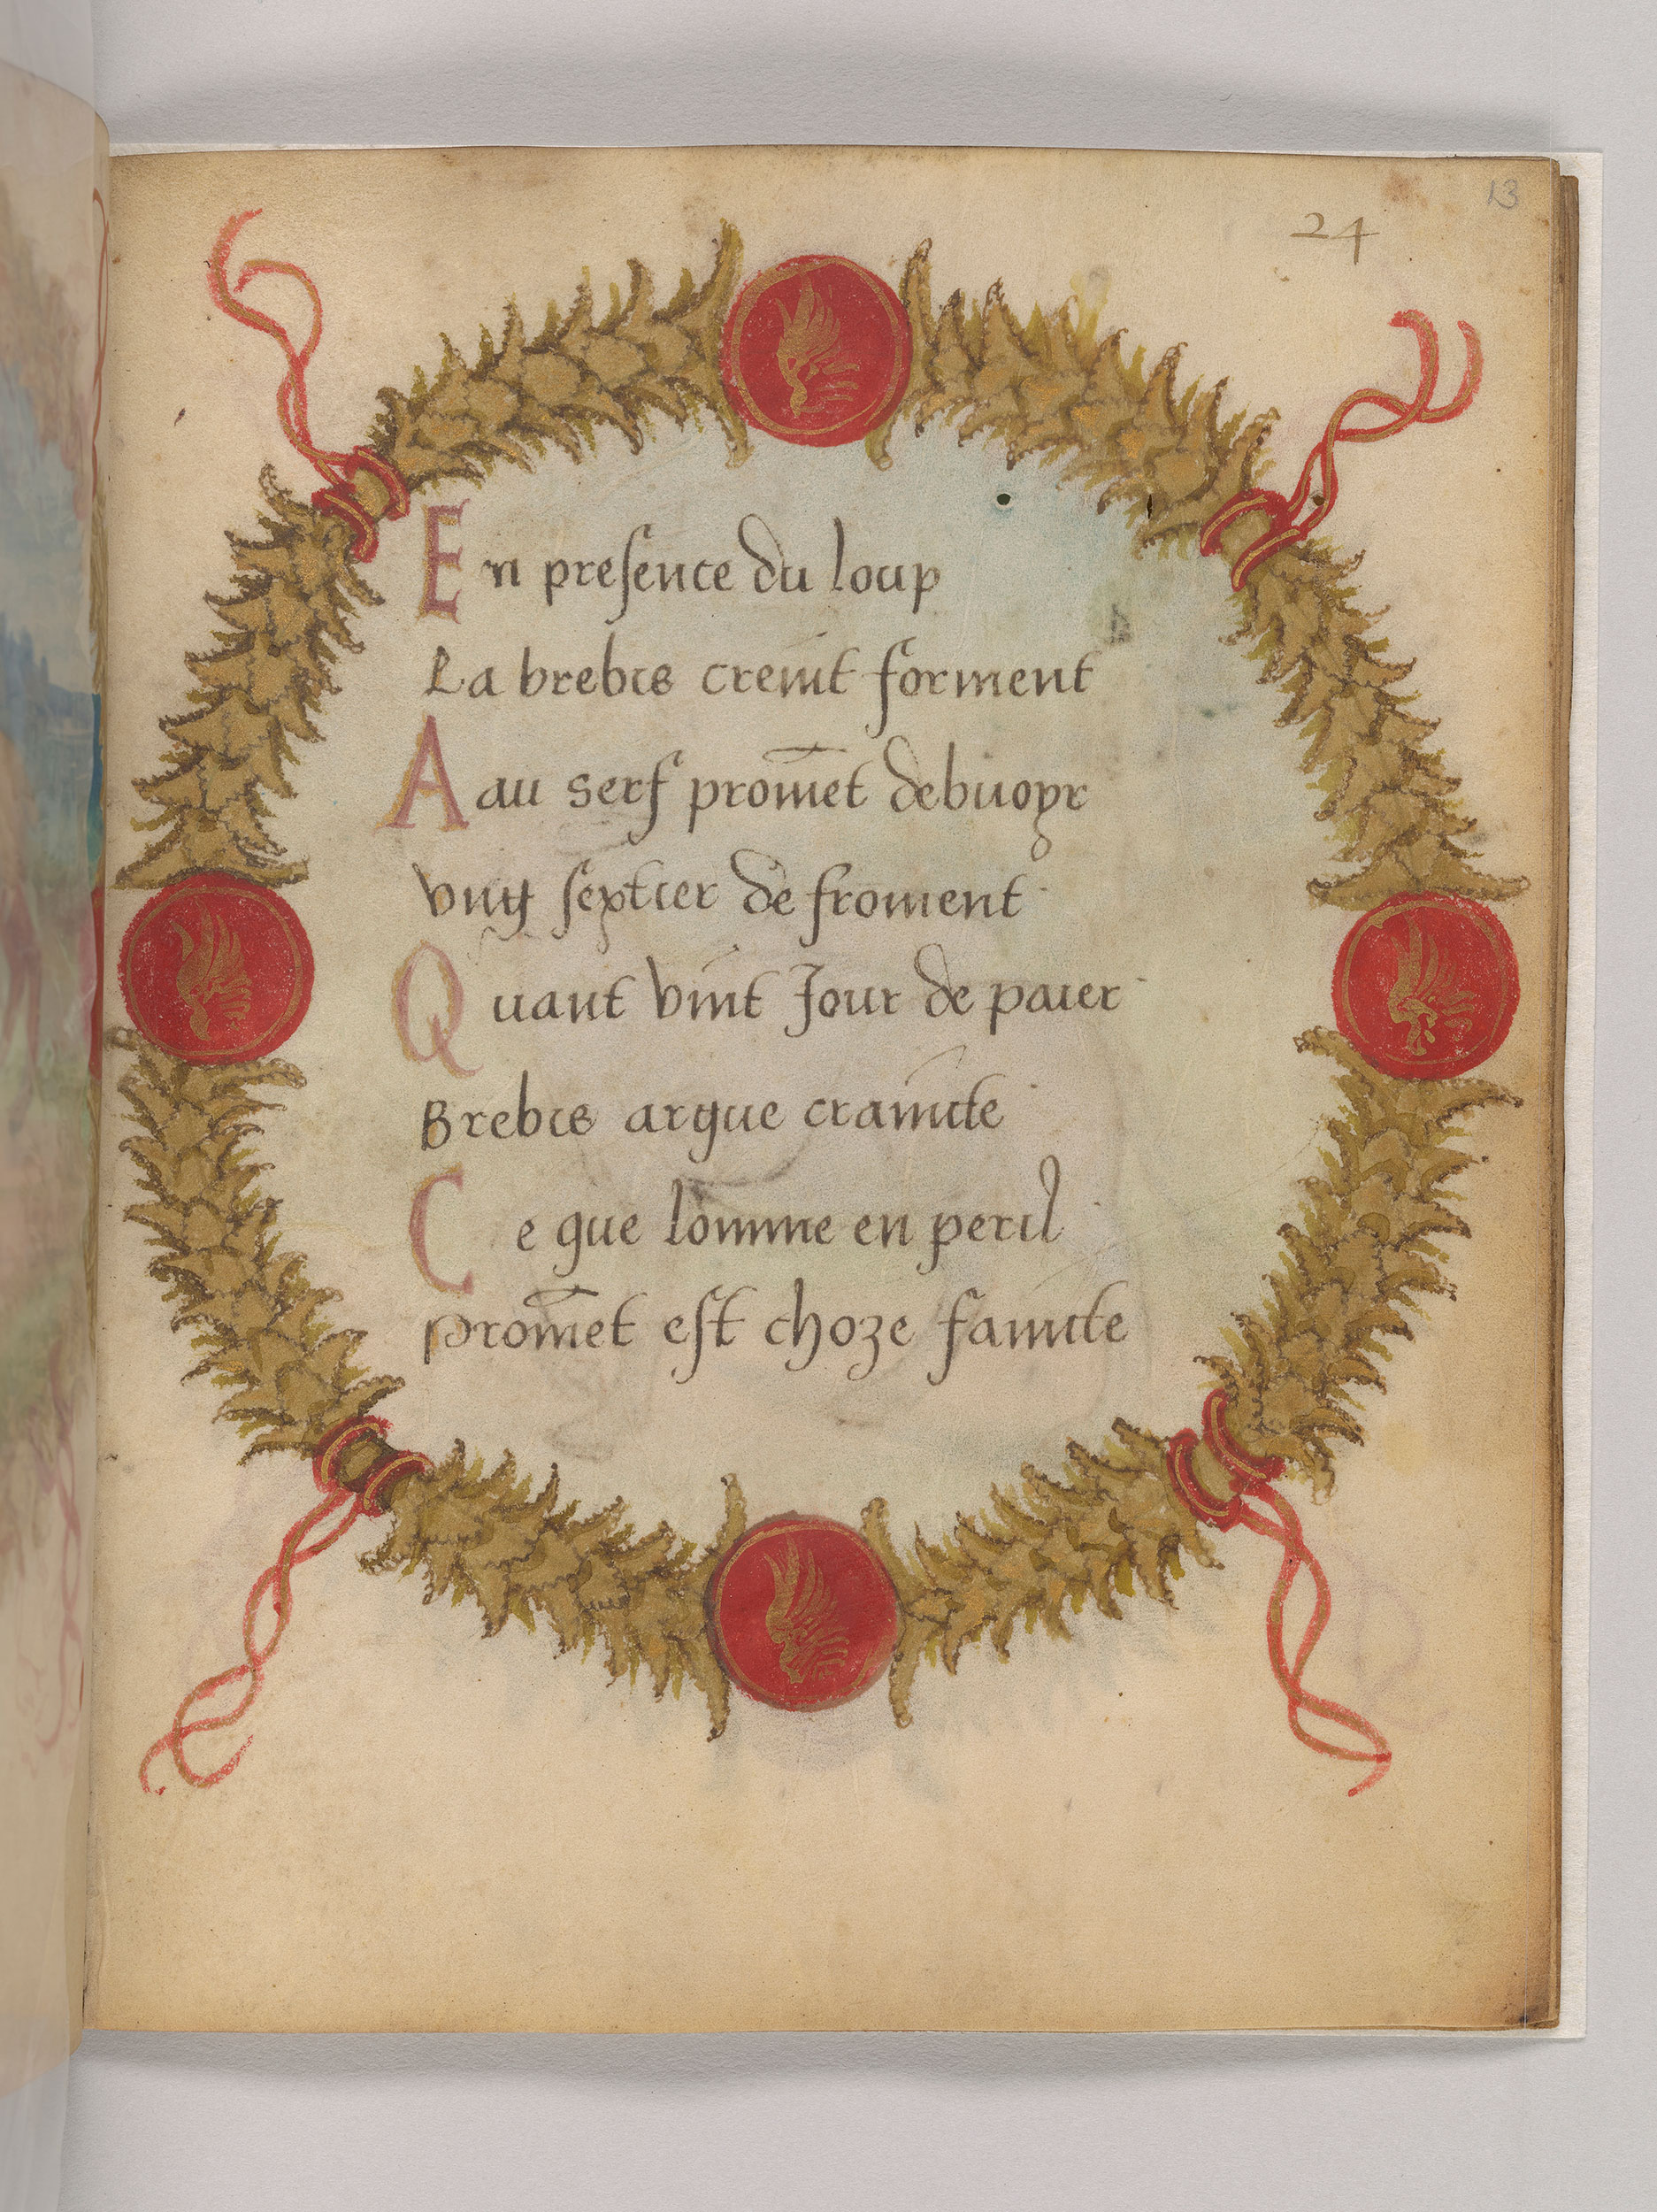 13
24
En presence du loup
La brebis creint forment
Aau serf promet debuoyr
vng septier de froment
Quant vint Jour de paier
Brebis argue craincte
Ce que lomme en peril
promet est choze faincte